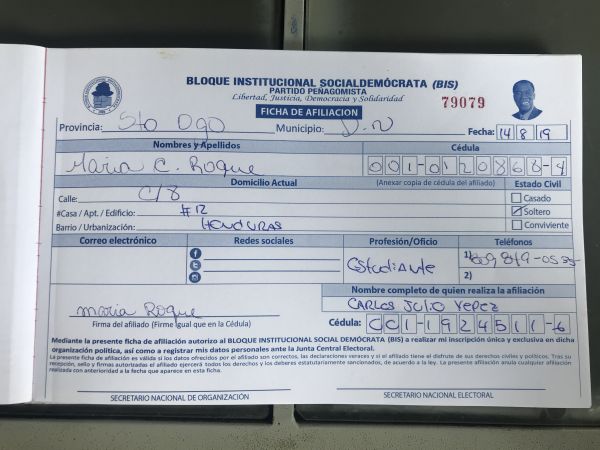 BLOQUE INSTITUCIONAL SOCIALDEMÓCRATA (BIS)
PARTIDO PEÑAGOMISTA
Libertad, Justicia, Democracia y Solidaridad
79079
FICHA DE AFILIACION
Provincia: Sto Dgo Municipio: D.N Fecha: 14 8 19
Nombres y Apellidos Cédula
Maria C. Roque 001-0120868-4
Domicilio Actual (Anexar copia de cédula del afiliado) Estado Civil
Calle: C/8 Casado
#Casa / Apt. / Edificio: #12 Soltero
Barrio / Urbanización: HONDURAS Conviviente
Correo electrónico Redes sociales Profesión/Oficio Teléfonos
Estudiante 1) 809 849-0535
2)
Nombre completo de quien realiza la afiliación
maria Roque CARLOS JULIO YEPEZ
Firma del afiliado (Firme igual que en la Cédula) Cédula: CC1-1924511-6
Mediante la presente ficha de afiliación autorizo al BLOQUE INSTITUCIONAL SOCIAL DEMÓCRATA (BIS) a realizar mi inscripción única y exclusiva en dicha
organización política, así como a registrar mis datos personales ante la Junta Central Electoral.
La presente ficha de afiliación es válida si los datos ofrecidos por el afiliado son correctos, las declaraciones veraces y si el afiliado tiene el disfrute de sus derechos civiles y políticos. Tras su
recepción, sello y firmas autorizadas el afiliado ejercerá todos los derechos y los deberes estatutariamente sancionados, de acuerdo a la ley. La presente afiliación anula cualquier afiliación
realizada con anterioridad a la fecha que aparece en esta ficha.
SECRETARIO NACIONAL DE ORGANIZACIÓN SECRETARIO NACIONAL ELECTORAL